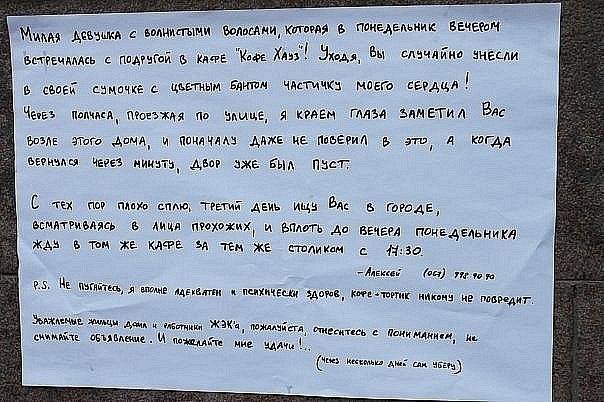 Милая девушка с волнистыми волосами, которая в понедельник вечером
встречалась с подругой в кафе "Кофе Хауз"! Уходя, Вы случайно унесли
в своей сумочке с цветным бантом частичку моего сердца!
Через полчаса, проезжая по улице, я краем глаза заметил Вас
возле этого дома, и поначалу даже не поверил в это, а когда
вернулся через минуту, двор уже был пуст.
С тех пор плохо сплю, третий день ищу Вас в городе,
всматриваясь в лица прохожих, и вплоть до вечера понедельника
жду в том же кафе за тем же столиком с 17:30.
- Алексей (057)
P.S. Не пугайтесь, я вполне адекватен и психически здоров, кофе-тортик никому не повредит.
Уважаемые жильцы дома и работники ЖЭК'а, пожалуйста, отнеситесь с пониманием, не
снимайте объявление. И пожелайте мне удачи!..
(через несколько дней сам уберу)